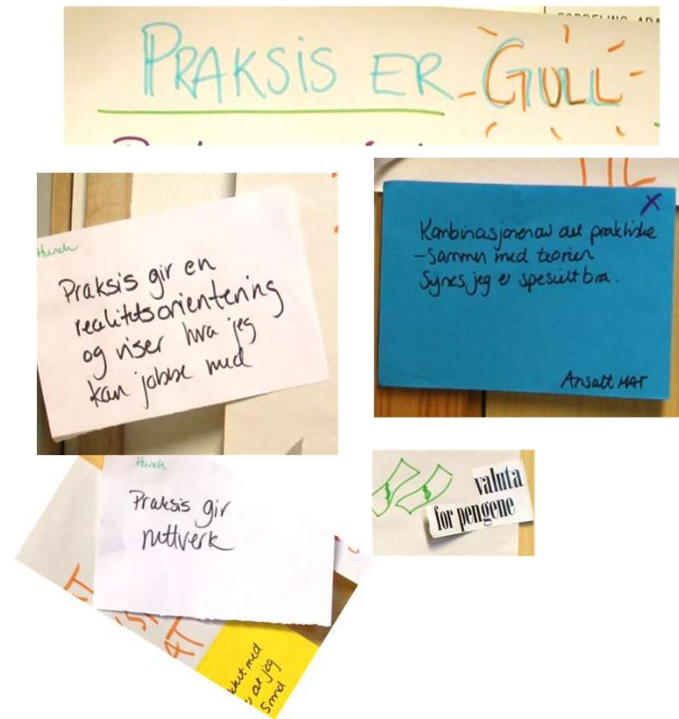 PRAKSIS ER GULL
Hunch
Praksis gir en
realitetsorientering
og viser hva jeg
kan jobbe med
X
Kombinasjonen av det praktiske
-Sammen med teorien
Synes jeg er spesielt bra.
Ansatt MAT
Hunch
Praksis gir
nettverk
valuta
for pengene
med
at jeg